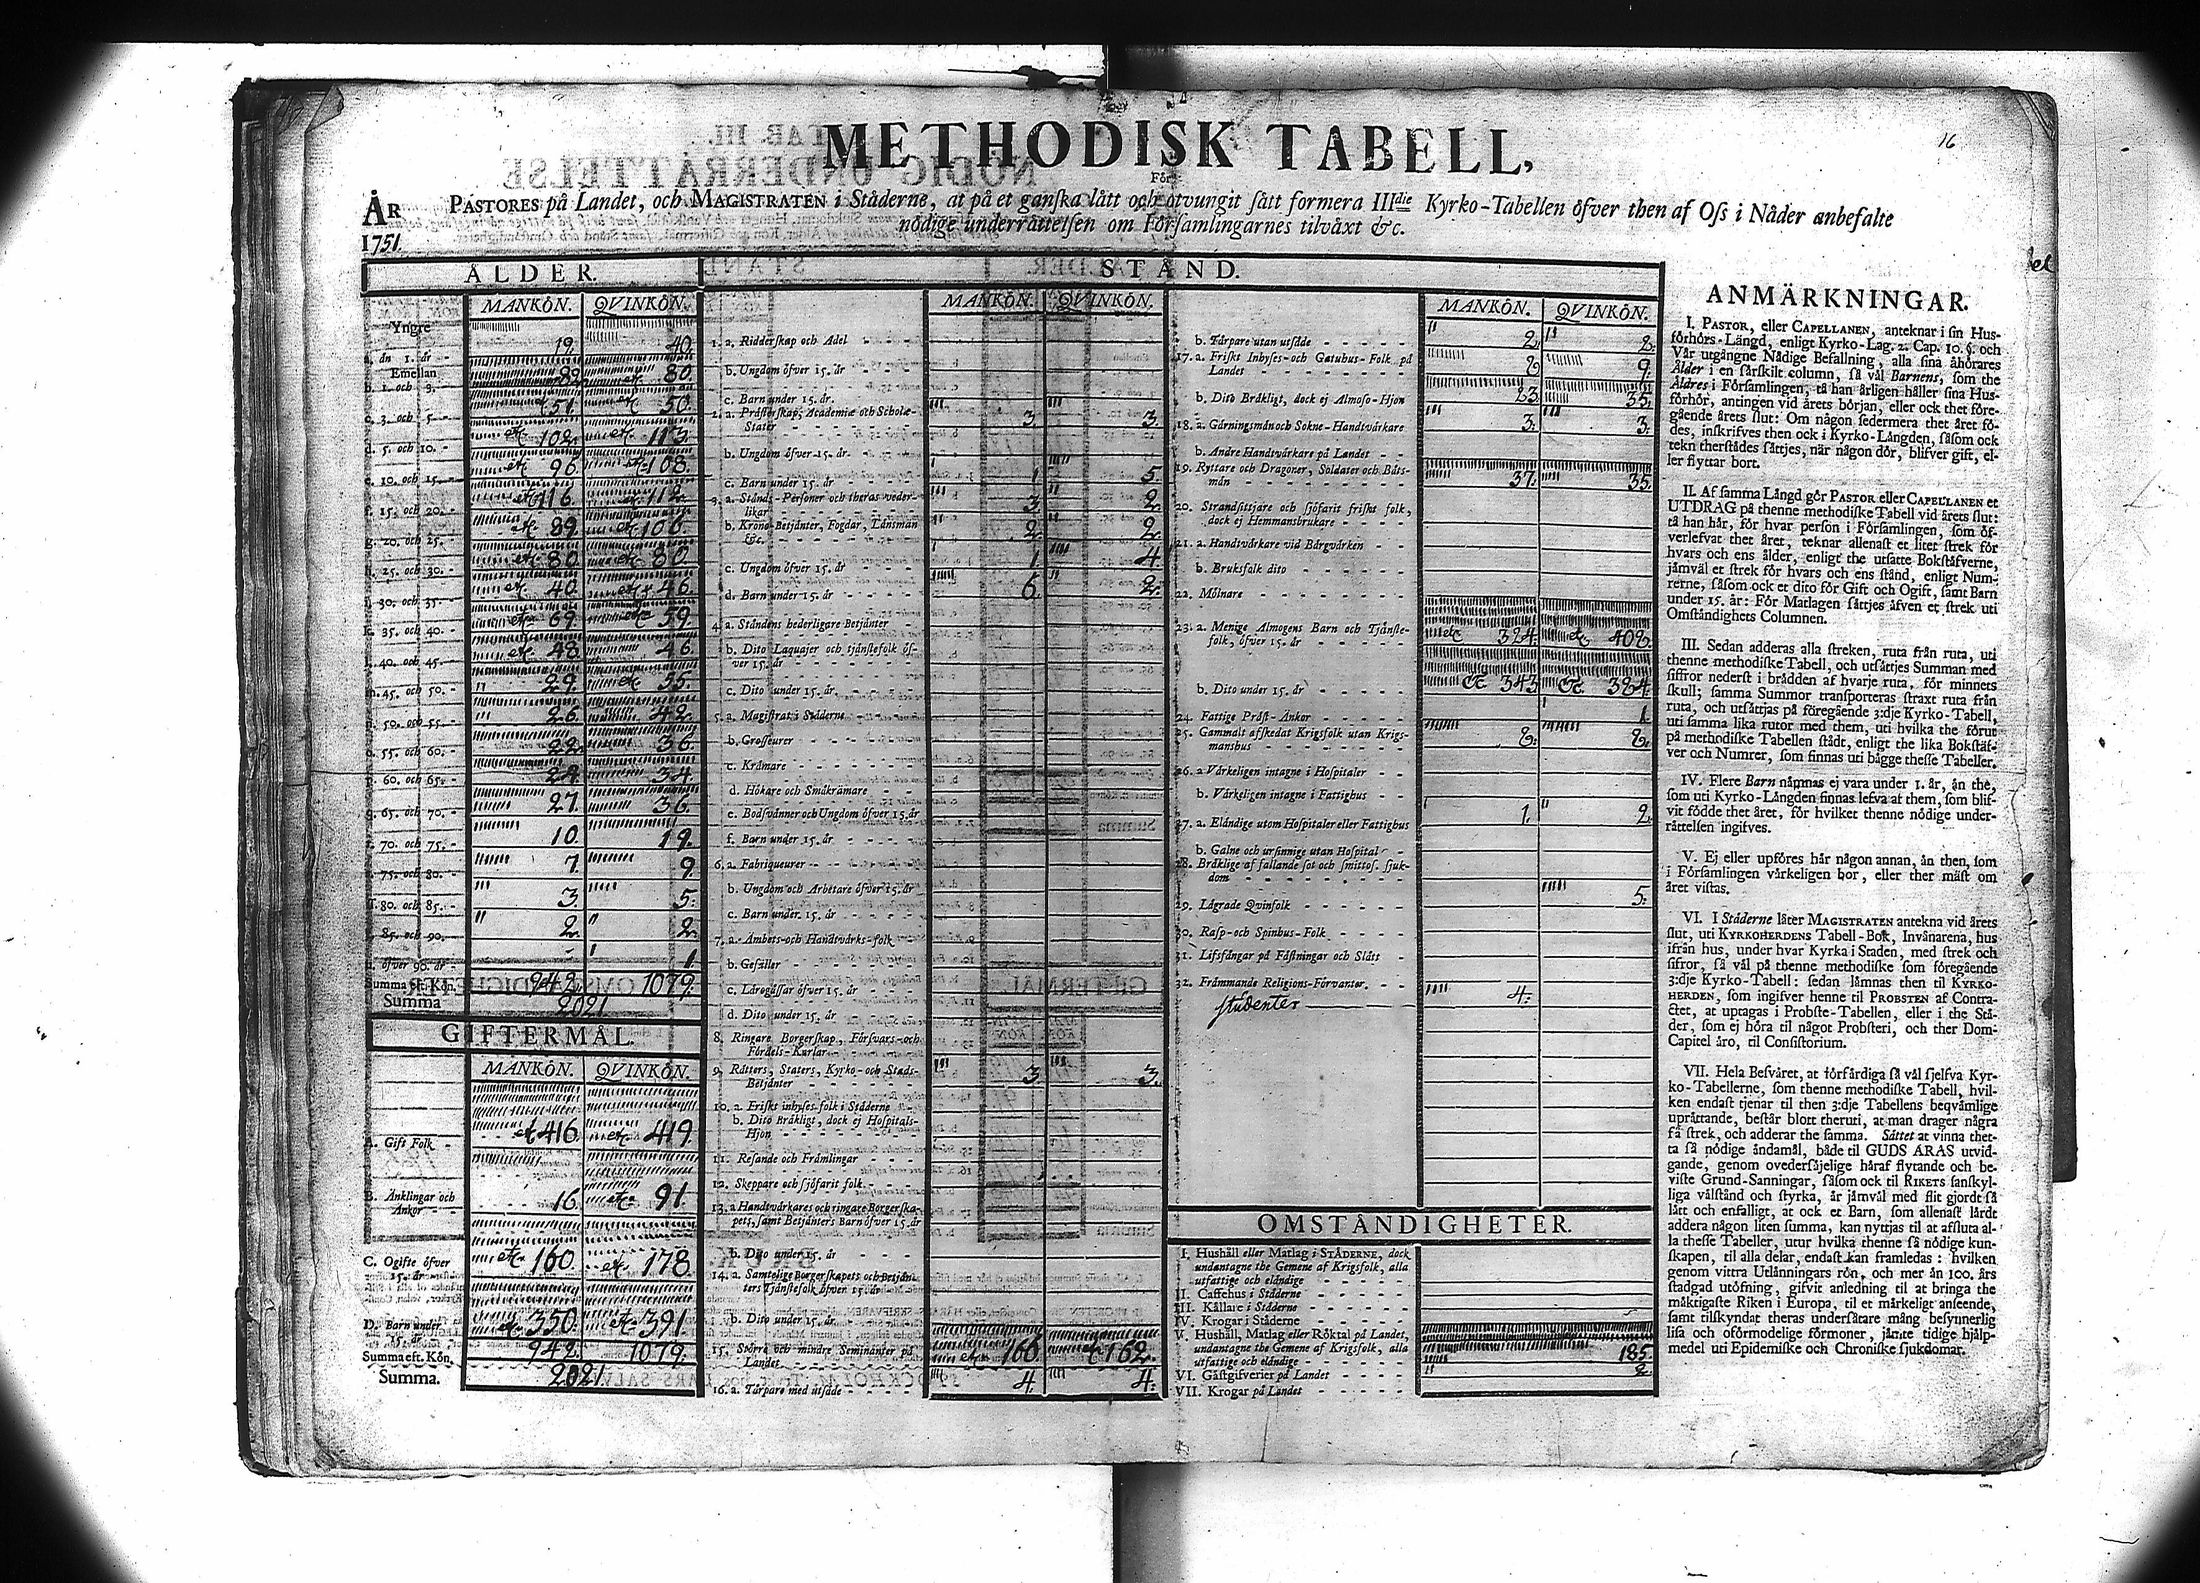 16
METHODISK TABELL,
För
ÅR
1751.
PASTORES på Landet, och MAGISTRATEN i Städerne, at på et ganska lätt och otvungit sätt formera IIIdie Kyrko-Tabellen öfver then af Oss i Nåder anbefalte
nödige underrättelsen om Församlingarnes tilväxt &c.
ÅLDER.
MANKÖN. QVINKÖN.
Yngre
a. än 1. år - 19. 40
Emellan
b. 1. och 3. 82 80
c. 3. och 5. - et 51. et 50.
d. 5. och 10. - etc 102. etc 113.
e. 10. och 15. - etc 96. etc 108.
f. 15. och 20. - etc 116. et 112.
g. 20. och 25. etc 89. etc 106.
h. 25. och 30. - etc 80. etc 80.
i. 30. och 35. - etc 40. etc 46.
k. 35. och 40. - etc 69. etc 59.
l. 40. och 45. etc 48. 46.
m. 45. och 50. - 29. etc 55.
n. 50. och 55. - 26. 42.
o. 55. och 60. - 22. 36.
p. 60. och 65. - 28. 34.
q. 65. och 70. - 27. 36.
r. 70. och 75. - 10. 19.
s. 75. och 80. - 7. 9.
t. 80. och 85. - 3. 5.
u. 85. och 90. 2. 2.
x. öfver 90. år - - 1
Summa eft. Kön. 942. 1079.
Summa 2021.
GIFTERMÅL.
MANKÖN. QVINKÖN.
A. Gift Folk - et 416. etc 419.
B. Änklingar och
Änkor - - 16. etc 91.
C. Ogifte öfver
15. år etc 160. etc 178
D. Barn under
15. år etc 350. etc 391.
Summa eft. Kön. 942. 1079.
Summa. 2021.
STÅND.
MANKÖN. QVINKÖN.
1. a. Ridderskap och Adel
b. Ungdom öfver 15. år
c. Barn under 15. år.
2. a. Prästerskap, Academiæ och Scholæ-
Stater 3. 3.
b. Ungdom öfver 15. år
c. Barn under 15. år 1 5.
3. a. Stånds-Personer och theras veder-
likar 3. 2.
b. Krono-Betjänter, Fogdar, Länsmän
&c. 2. 2.
c. Ungdom öfver 15. år 1 4.
d. Barn under 15. år 6. 2.
4. a. Ståndens hederligare Betjänter
b. Dito Laquajer och tjänstefolk öf-
ver 15. år
c. Dito under 15. år
5. a. Magistrat i Städerne
b. Grosseurer
c. Krämare
d. Hökare och Småkrämare
e. Bodsvänner och Ungdom öfver 15. år
f. Barn under 15. år
6. a. Fabriqueurer
b. Ungdom och Arbetare öfver 15. år
c. Barn under 15. år
7. a. Ämbets- och Handtvärks-folk
b. Gesäller
c. Lärogässar öfver 15. år
d. Dito under 15. år
8. Ringare Borgerskap, Försvars- och
Fördels-Karlar
9. Rätters, Staters, Kyrko- och Stads-
Betjänter 3. 3.
10. a. Friskt inhyses-folk i Städerne
b. Dito Bräkligt, dock ej Hospitals-
Hjon
11. Resande och Främlingar
12. Skeppare och sjöfarit folk
13. a Handtvärkares och ringare Borgerska-
pets, samt Betjänters Barn öfver 15. år
b. Dito under 15. år
14. a. Samtelige Borgerskapets och Betjän-
ters Tjänstefolk öfver 15. år
b. Dito under 15. år
15. Större och mindre Seminanter på
Landet etc 160. et 162.
16. a. Torpare med utsäde 4. 4.
MANKÖN. QVINKÖN.
b. Torpare utan utsäde 2. 2.
17. a. Friskt Inhyses- och Gatuhus-Folk på
Landet 8 9.
b. Dito Bräkligt, dock ej Almoso-Hjon 23. 35.
18. a. Gärningsmän och Sokne-Handtvärkare 3. 3.
b. Andre Handtvärkare på Landet
19. Ryttare och Dragoner, Soldater och Båts-
män 37. 35.
20. Strandsittjare och sjöfarit friskt folk,
dock ej Hemmansbrukare
21. a. Handtvärkare vid Bärgvärken
b. Bruksfolk dito
22. Mölnare
23. a. Menige Almogens Barn och Tjänste-
folk, öfver 15. år etc 324. etc 402.
b. Dito under 15. år &c 343 &c 384.
24. Fattige Präst-Änkor 1.
25. Gammalt afskedat Krigsfolk utan Krigs-
manshus 8. 8.
26. a Värkeligen intagne i Hospitaler
b. Värkeligen intagne i Fattighus 1. 2.
27. a. Eländige utom Hospitaler eller Fattighus
b. Galne och ursinnige utan Hospital
28. Bräklige af fallande sot och smittos. sjuk-
dom
29. Lägrade Qvinfolk 5.
30. Rasp- och Spinhus-Folk
31. Lifsfångar på Fästningar och Slått
32. Främmande Religions-Förvanter.
studenter 4.
OMSTÄNDIGHETER.
I. Hushåll eller Matlag i STÄDERNE, dock
undantagne the Gemene af Krigsfolk, alla
utfattige och eländige
II. Caffehus i Städerne
III. Källare i Städerne
IV. Krogar i Städerne
V. Hushåll, Matlag eller Röktal på Landet,
undantagne the Gemene af Krigsfolk, alla
utfattige och eländige 185.
VI. Gästgifverier på Landet 2
VII. Krogar på Landet
ANMÄRKNINGAR.
I. PASTOR, eller CAPELLANEN, anteknar i sin Hus-
förhörs-Längd, enligt Kyrko-Lag. 2. Cap. 10. §. och
Vår utgångne Nådige Befallning, alla sina åhörares
Ålder i en särskilt column, så väl Barnens, som the
Äldres i Församlingen, tå han årligen håller sina Hus-
förhör, antingen vid årets början, eller ock thet före-
gående årets slut: Om någon sedermera thet året fö-
des, inskrifves then ock i Kyrko-Längden, såsom ock
tekn therstädes sättjes, när någon dör, blifver gift, el-
ler flyttar bort.
II. Af samma Längd gör PASTOR eller CAPELLANEN et
UTDRAG på thenne methodiske Tabell vid årets slut:
tå han här, för hvar person i Församlingen, som öf-
verlefvat thet året, teknar allenast et litet strek för
hvars och ens ålder, enligt the utsatte Bokstäfverne,
jämväl et strek för hvars och ens stånd, enligt Num-
rerne, såsom ock et dito för Gift och Ogift, samt Barn
under 15. år: För Matlagen sättjes äfven et strek uti
Omständighets Columnen.
III. Sedan adderas alla streken, ruta från ruta, uti
thenne methodiske Tabell, och utsättjes Summan med
siffror nederst i brädden af hvarje ruta, för minnets
skull; samma Summor transporteras straxt ruta från
ruta, och utsättjas på föregående 3:dje Kyrko-Tabell,
uti samma lika rutor med them, uti hvilka the förut
på methodiske Tabellen stådt, enligt the lika Bokstäf-
ver och Numrer, som finnas uti bägge thesse Tabeller.
IV. Flere Barn nämnas ej vara under 1. år, än the,
som uti Kyrko-Längden finnas lefva at them, som blif-
vit födde thet året, för hvilket thenne nödige under-
rättelsen ingifves.
V. Ej eller upföres här någon annan, än then, som
i Församlingen värkeligen bor, eller ther mäst om
året vistas.
VI. I Städerne låter MAGISTRATEN antekna vid årets
slut, uti KYRKOHERDENS Tabell-Bok, Invånarena, hus
ifrån hus, under hvar Kyrka i Staden, med strek och
sifror, så väl på thenne methodiske som föregående
3:dje Kyrko-Tabell: sedan lämnas then til KYRKO-
HERDEN, som ingifver henne til PROBSTEN af Contra-
ctet, at uptagas i Probste-Tabellen, eller i the Stä-
der, som ej höra til något Probsteri, och ther Dom-
Capitel äro, til Consistorium.
VII. Hela Besväret, at förfärdiga så väl sjelfva Kyr-
ko-Tabellerne, som thenne methodiske Tabell, hvil-
ken endast tjenar til then 3:dje Tabellens beqvämlige
uprättande, består blott theruti, at man drager några
få strek, och adderar the samma. Sättet at vinna thet-
ta så nödige ändamål, både til GUDS ÄRAS utvid-
gande, genom ovedersäjelige häraf flytande och be-
viste Grund-Sanningar, såsom ock til RIKETS sanskyl-
liga välstånd och styrka, är jämväl med flit gjordt så
lätt och enfalligt, at ock et Barn, som allenast lärdt
addera någon liten summa, kan nyttjas til at afsluta al-
la thesse Tabeller, utur hvilka thenne så nödige kun-
skapen, til alla delar, endast kan framledas: hvilken
genom vittra Utlänningars rön, och mer än 100. års
stadgad utöfning, gifvit anledning til at bringa the
mäktigaste Riken i Europa, til et märkeligt anseende,
samt tilskyndat theras undersåtare mång besynnerlig
lisa och oförmodelige förmoner, jämte tidige hjälp-
medel uti Epidemiske och Chroniske sjukdomar.